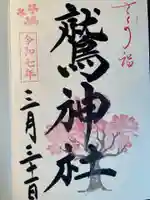 鷲神社
令和七年
三月三十一日